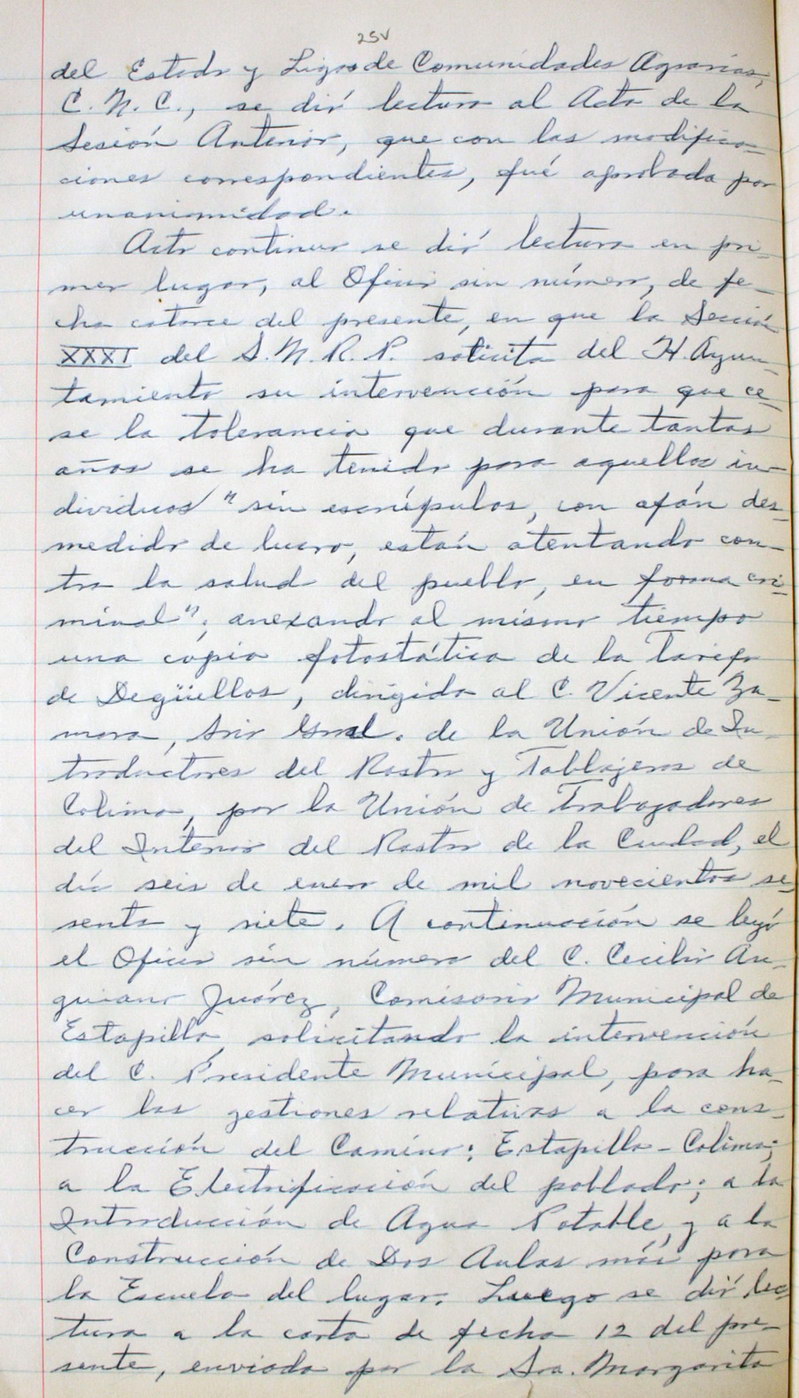 25v
del Estado y Ligas de Comunidades Agrarias,
C. N. C., se dió lectura al Acta de la
Sesión Anterior, que con las modifica-
ciones correspondientes, fué aprobada por
unanimidad.
Acto continuo se dió lectura en pri-
mer lugar, al Oficio sin número, de fe-
cha catorce del presente, en que la Sección
XXXI del S.N.R.P. solicita del H. Ayun-
tamiento su intervención para que ce-
se la tolerancia que durante tantos
años se ha tenido para aquellos in-
dividuos "sin escrúpulos, con afán des-
medido de lucro, están atentando con-
tra la salud del pueblo, en forma cri-
minal"; anexando al mismo tiempo
una copia fotostática de la Tarifa
de Degüellos, dirigida al C. Vicente Za-
mora, Srio Gral. de la Unión de In-
troductores del Rastro y Tablajeros de
Colima, por la Unión de Trabajadores
del Interior del Rastro de la Ciudad, el
día seis de enero de mil novecientos se-
senta y siete. A continuación se leyó
el Oficio sin número del C. Cecilio An-
guiano Juárez, Comisario Municipal de
Estapilla, solicitando la intervención
del C. Presidente Municipal, para ha-
cer las gestiones relativas a la cons-
trucción del Camino: Estapilla - Colima;
a la Electrificación del poblado; a la
Introducción de Agua Potable, y a la
Construcción de Dos Aulas más para
la Escuela del lugar. Luego se dió lec-
tura a la carta de fecha 12 del pre-
sente, enviada por la Sra. Margarita